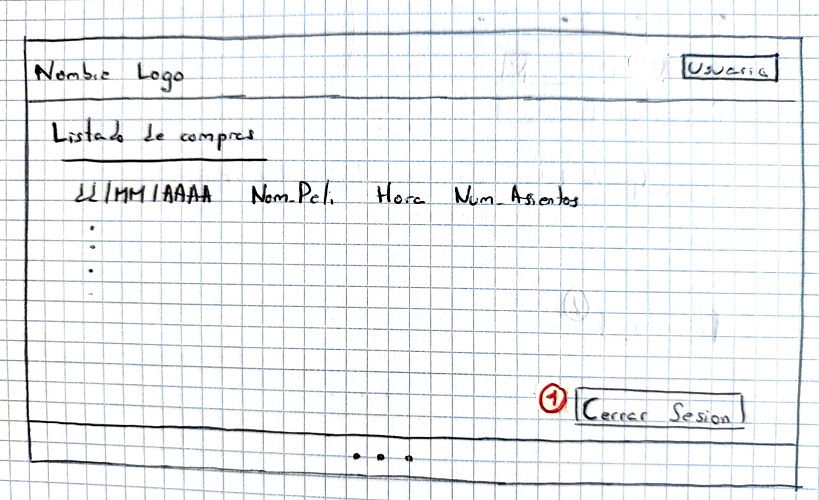 Nombre Logo
Usuario
Listado de compras
DD/MM/AAAA Nom_Peli Hora Num_Asientos
1 Cerrar Sesion